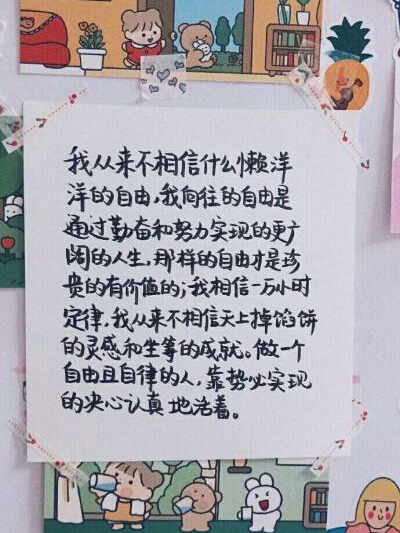 我从来不相信什么懒洋
洋的自由，我向往的自由是
通过勤奋和努力实现的更广
阔的人生，那样的自由才是珍
贵的有价值的；我相信一万小时
定律，我从来不相信天上掉馅饼
的灵感和坐等的成就。做一个
自由且自律的人，靠势必实现
的决心认真地活着。